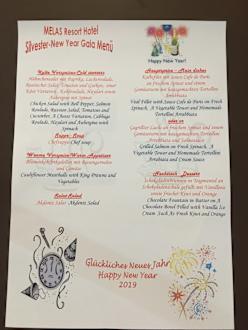 MELAS Resort Hotel
Silvester-New Year Gala Menü
Kalte Vorspeise-Cold starters
Hähnchensalat mit Paprika, Lachsroulade,
Russischer Salat, Tomaten und Gurken, einer
Käse Variation, Kohlroulade, Heydari und
Aubergine mit Spinat
Chicken Salad with Bell Pepper, Salmon
Roulade, Russian Salad, Tomatoes and
Cucumber, A Cheese Variation, Cabbage
Roulade, Heydari and Aubergine with
Spinach
Suppe- Soup
Chefsuppe Chef soup
Warme Vorspeise-Warm Appetizer
Blumenkohl
mit
und Gemüse
Cauliflower Meatballs with King Prawns and
Vegetables
Salat-Salad
Akdeniz Salat Akdeniz Salad
Happy New Year!
Hauptspeise - Main dishes
Kalbsfilet mit Sauce Cafe de Paris an
frischem Spinat und
mit hausgemachten Tortellini
Arrabbiata
Veal Fillet with Sauce Cafe de Paris on Fresh
Spinach, A Vegetable Tower and Homemade
Tortellini Arrabbiata
oder-or
Gegrillter Lachs an frischem Spinat und einem
mit hausgemachten
Tortellini Arrabbiata und
Grilled Salmon on Fresh Spinach, A
Vegetable Tower and Homemade Tortellini
Arrabbiata and Cream Sauce
Nachtisch - Dessert
Schokoladenbrunnen in
Schokoladenschale gefüllt mit Vanilleeis
sowie frischer Kiwi und Orange
Chocolate Fountain in Butter in A
Chocolate Bowl Filled with Vanilla Ice
Cream Such As Fresh Kiwi and Orange
Glückliches Neues Jahr
Happy New Year
2019